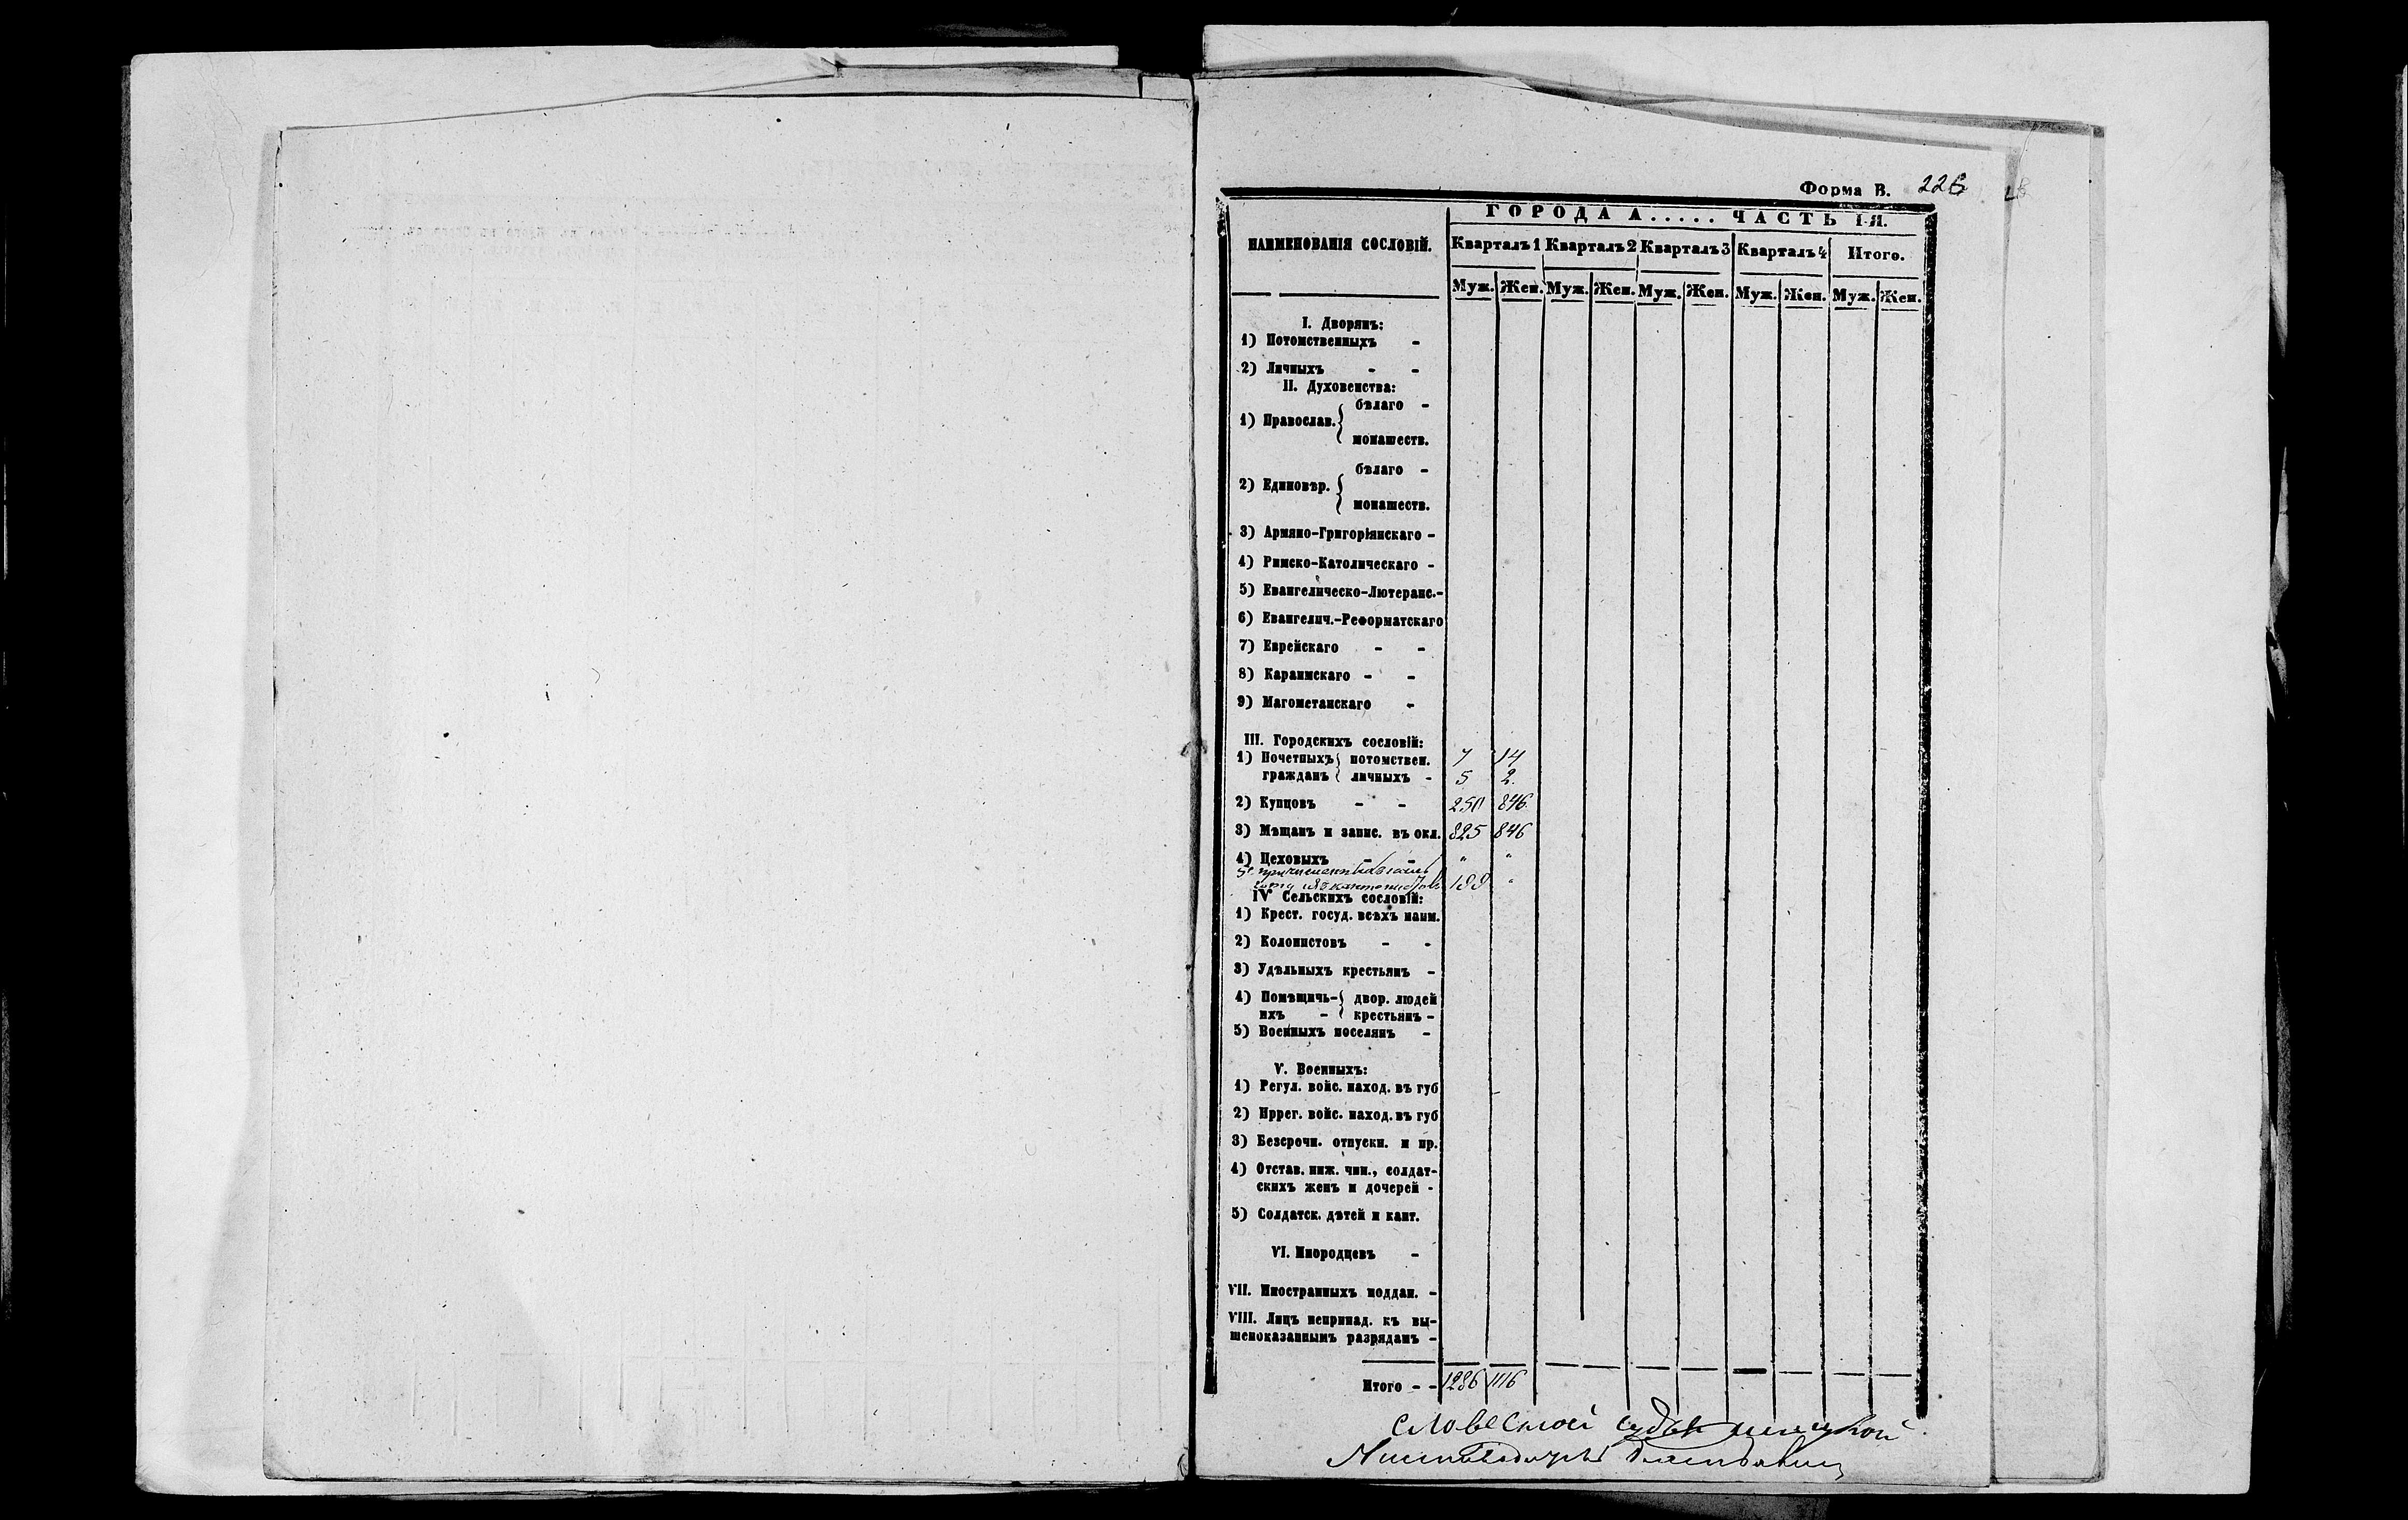 Форма В. 226
ГОРОДА А..... ЧАСТЬ 1-Я.
НАИМЕНОВАНІЯ СОСЛОВІЙ. Кварталъ 1 Кварталъ 2 Кварталъ 3 Кварталъ 4 Итого.
Муж. Жен. Муж. Жен. Муж. Жен. Муж. Жен. Муж. Жен.
I. Дворянъ:
1) Потомственныхъ -
2) Личныхъ - -
II. Духовенства:
бѣлаго -
1) Православ.
монашеств.
бѣлаго -
2) Единовѣр.
монашеств.
3) Армяно-Григоріянскаго -
4) Римско-Католическаго -
5) Евангелическо-Лютеранс.-
6) Евангелич.-Реформатскаго
7) Еврейскаго - -
8) Караимскаго - -
9) Магометанскаго -
III. Городскихъ сословій:
1) Почетныхъ потомствен. 7 14
гражданъ личныхъ - 5 2
2) Купцовъ - - 250 846
3) Мѣщанъ и запис. въ окл. 825 846
4) Цеховыхъ - - " "
199 "
IV Сельскихъ сословій:
1) Крест. госуд. всѣхъ наим.
2) Колонистовъ - -
3) Удѣльныхъ крестьянъ -
4) Помѣщичь- двор. людей
ихъ - крестьянъ -
5) Военныхъ поселянъ -
V. Военныхъ:
1) Регул. войс. наход. въ губ
2) Иррег. войс. наход. въ губ
3) Безсрочн. отпускн. и пр.
4) Отстав. ниж. чин., солдат-
скихъ женъ и дочерей -
5) Солдатск. дѣтей и кант.
VI. Инородцевъ -
VII. Иностранныхъ поддан. -
VIII. Лицъ непринад. къ вы-
шепоказаннымъ разрядамъ -
Итого - - 1286 1116
Словесной судьи